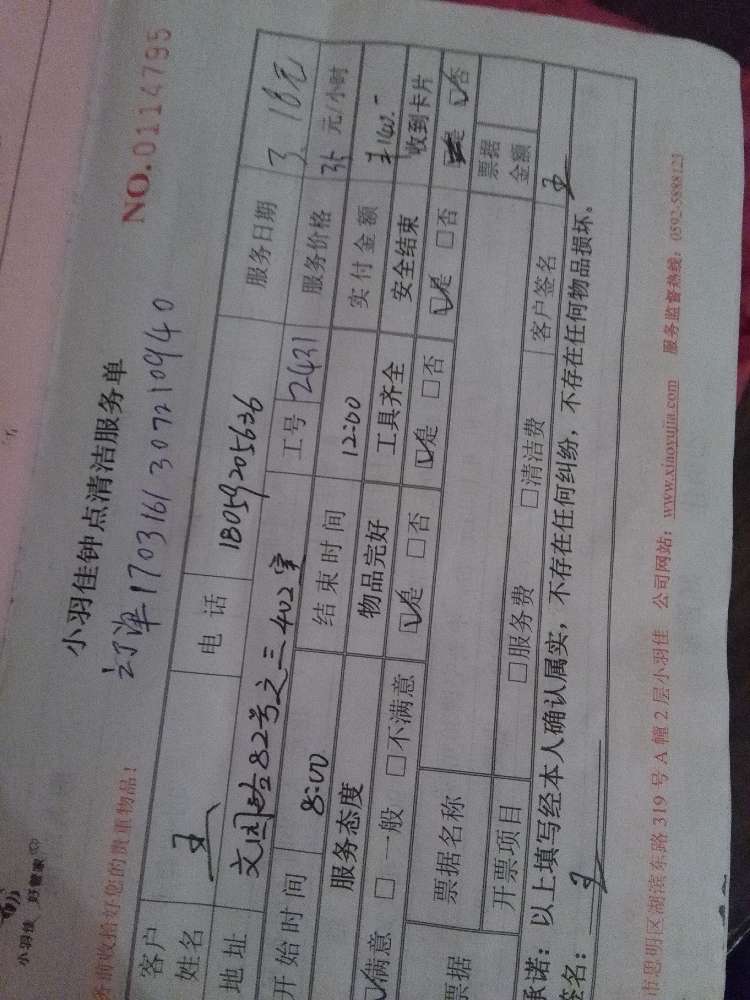 小羽佳 好管家
小羽佳钟点清洁服务单
NO.0114795
订单1703161307210940
收拾好您的贵重物品！
客户姓名 王 电话 18059205636 服务日期 3.18元
地址 文园路82号之三402室 工号 2431 服务价格 35元/小时
开始时间 8:00 结束时间 12:00 实付金额 ¥140.-
服务态度 物品完好 工具齐全 安全结束 收到卡片
☑满意 □一般 □不满意 ☑是 □否 ☑是 □否 ☑是 □否 是 ☑否
票据 票据名称 票据金额
开票项目 □服务费 □清洁费 客户签名 王
承诺：以上填写经本人确认属实，不存在任何纠纷，不存在任何物品损坏。
签名： 王
市思明区湖滨东路319号A幢2层小羽佳 公司网站：www.xiaoyujia.com 服务监督热线：0592-5888123